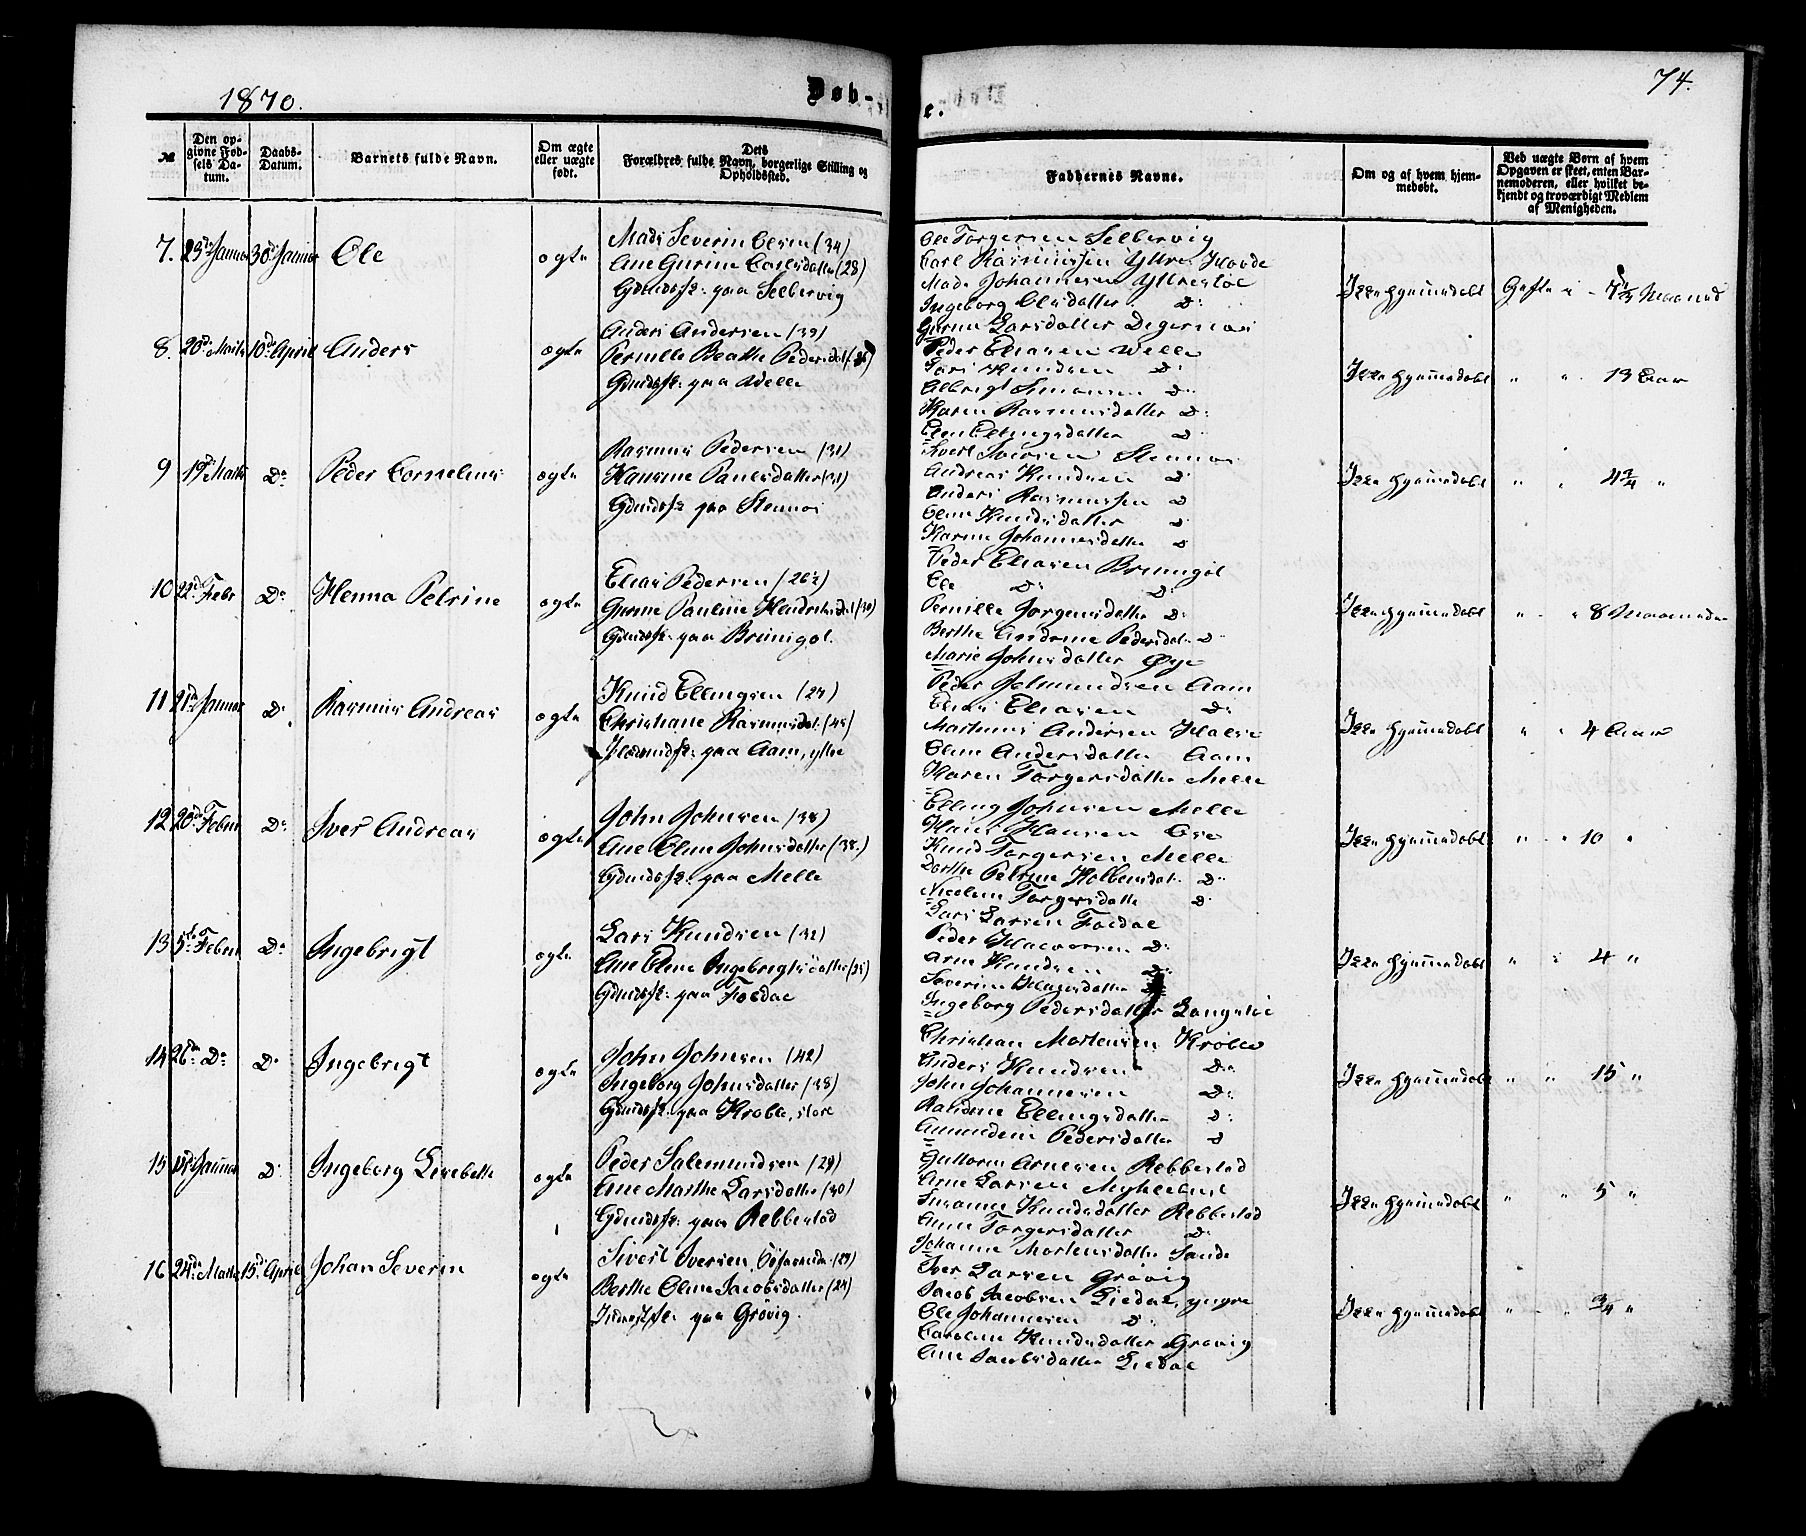 1870.
Døb-
e.
74.
№
Den op-
givne Fød-
sels Da-
tum.
Daabs-
Datum.
Barnets fulde Navn.
Om ægte
eller uægte
født.
Dets
Forældres fulde Navn, borgerlige Stilling og
Opholdssted.
Faddernes Navne.
Om og af hvem hjem-
medøbt.
Ved uægte Børn af hvem
Opgaven er skeet, enten Bar-
nemoderen, eller hvilket be-
kjendt og troværdigt Medlem
af Menigheden.
7. 23de Januar 30te Januar Ole ægte
Mads Severin Olsen (34)
Ane Gurine Carlsdatter (28)
Gdmdsf: paa Selbervig
Ole Torgersen Selbervig
Carl Rasmussen Yttre Hovde
Mads Johannesen Yttrestøl
Ingeborg Olsdatter D:
Gurine Larsdatter Degernæs
Ikke hjemmedøbt Gifte i - Maaned
8. 20de Marts 10de April Anders ægte
Anders Andersen (39)
Pernille Beathe Pedersdat
Gdmdsf: paa Welle
Peder Eliasen Welle
Lars Knudsen D:
Albrigt Simonsen D:
Karen Rasmusdatter D:
Elen Ellingsdatter D
Ikke hjemmedøbt " " 13 Aar
9 19de Marts Do Peder Cornelius ægte
Rasmus Pedersen (31)
Hansine Paulsdatter (31)
Gdmdsf: paa Steinnes
Sivert Iversen Steinnes
Andreas Knudsen D
Anders Rasmussen D
Elene Knudsdatter D
Karine Johannesdatter D
Ikke hjemmedøbt " " 4¾ "
10 22de Febr Do Henna Petrine ægte
Elias Pedersen (26½)
Gurine Pauline Hendriksdat (30)
Gdmdsf: paa Brunigol.
Peder Eliasen Brunigol
Ole D: D:
Pernille Jørgensdatter D:
Berthe Andrine Pedersdat D
Marie Johnsdatter Øye
Ikke hjemmedøbt " " 8 Maaneder
11 21de Januar D: Rasmus Andreas ægte
Knud Ellingsen (27)
Christiane Rasmusdat: (45)
paa Aam, ytre
Peder Salmundsen Aam
Elias Eliasen D:
Martinus Andersen Halse
Elen Andersdatter Aam
Karen Torgersdatter Melle
Ikke hjemmedøbt " " 4 Aar
12 20de Febru Do Iver Andreas ægte
John Johnsen (38)
Ane Eline Johnsdatter (38.)
Gdmdsf: paa Melle
Elling Johnsen Melle
Hans Hansen Ose
Knud Torgersen Melle
Dorthe Petrine Kolbensdat: D:
Nicoline Torgersdatter D:
Ikke hjemmedøbt " " 10 "
13 5te Febru Do Ingebrigt ægte
Lars Knudsen (32)
Ane Eline Ingebrigtsdatter (35)
Gdmdsf: paa Foldal
Lars Larsen Foldal
Peder Halvorsen D:
Arne Knudsen D:
Severine
Ingeborg Pedersdatter Langstøl
Ikke hjemmedøbt " " 4 "
14 26de Do D: Ingebrigt ægte
John Johnsen (42)
Ingeborg Johnsdatter (38)
Gdmdsf: paa Krøble, store
Christian Mortensen Krøble
Anders Knudsen D:
John Johannesen D:
Randine Ellingsdatter D:
Amundine Pedersdatter D
Ikke hjemmedøbt " " 15 "
15 Januar D: Ingeborg Lisebette ægte
Peder Salemundsen (29)
Ane Marthe Larsdatter (30)
Gdmdsf: paa Rebbestad
Guttorm Arnesen Rebbestad
Arne Larsen Myklebust
Susanne Knudsdatter Rebbestad
Anne Torgersdatter D:
Johanne Mortensdatter Sande
Ikke hjemmedøbt " " 5 "
16 24de Marts 15de April Johan Severin ægte
Sivert Iversen, (29)
Berthe Oline Jacobsdatter (24)
paa Grøvig.
Iver Larsen Grøvig
Jacob Jacobsen Liedal, yngre
Ole Johannesen D:
Caroline Knudsdatter Grøvig
Ane Jacobsdatter Liedal
Ikke hjemmedøbt " " ¾ "